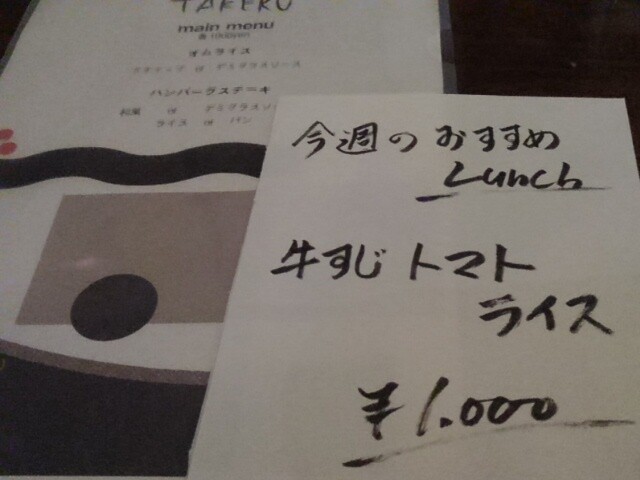 TAKERU
main menu
各1000yen
オムライス
ケチャップ or デミグラスソース
ハンバーグステーキ
和風 or デミグラスソ
ライス or パン
今週のおすすめ
Lunch
牛すじトマト
ライス
¥1.000